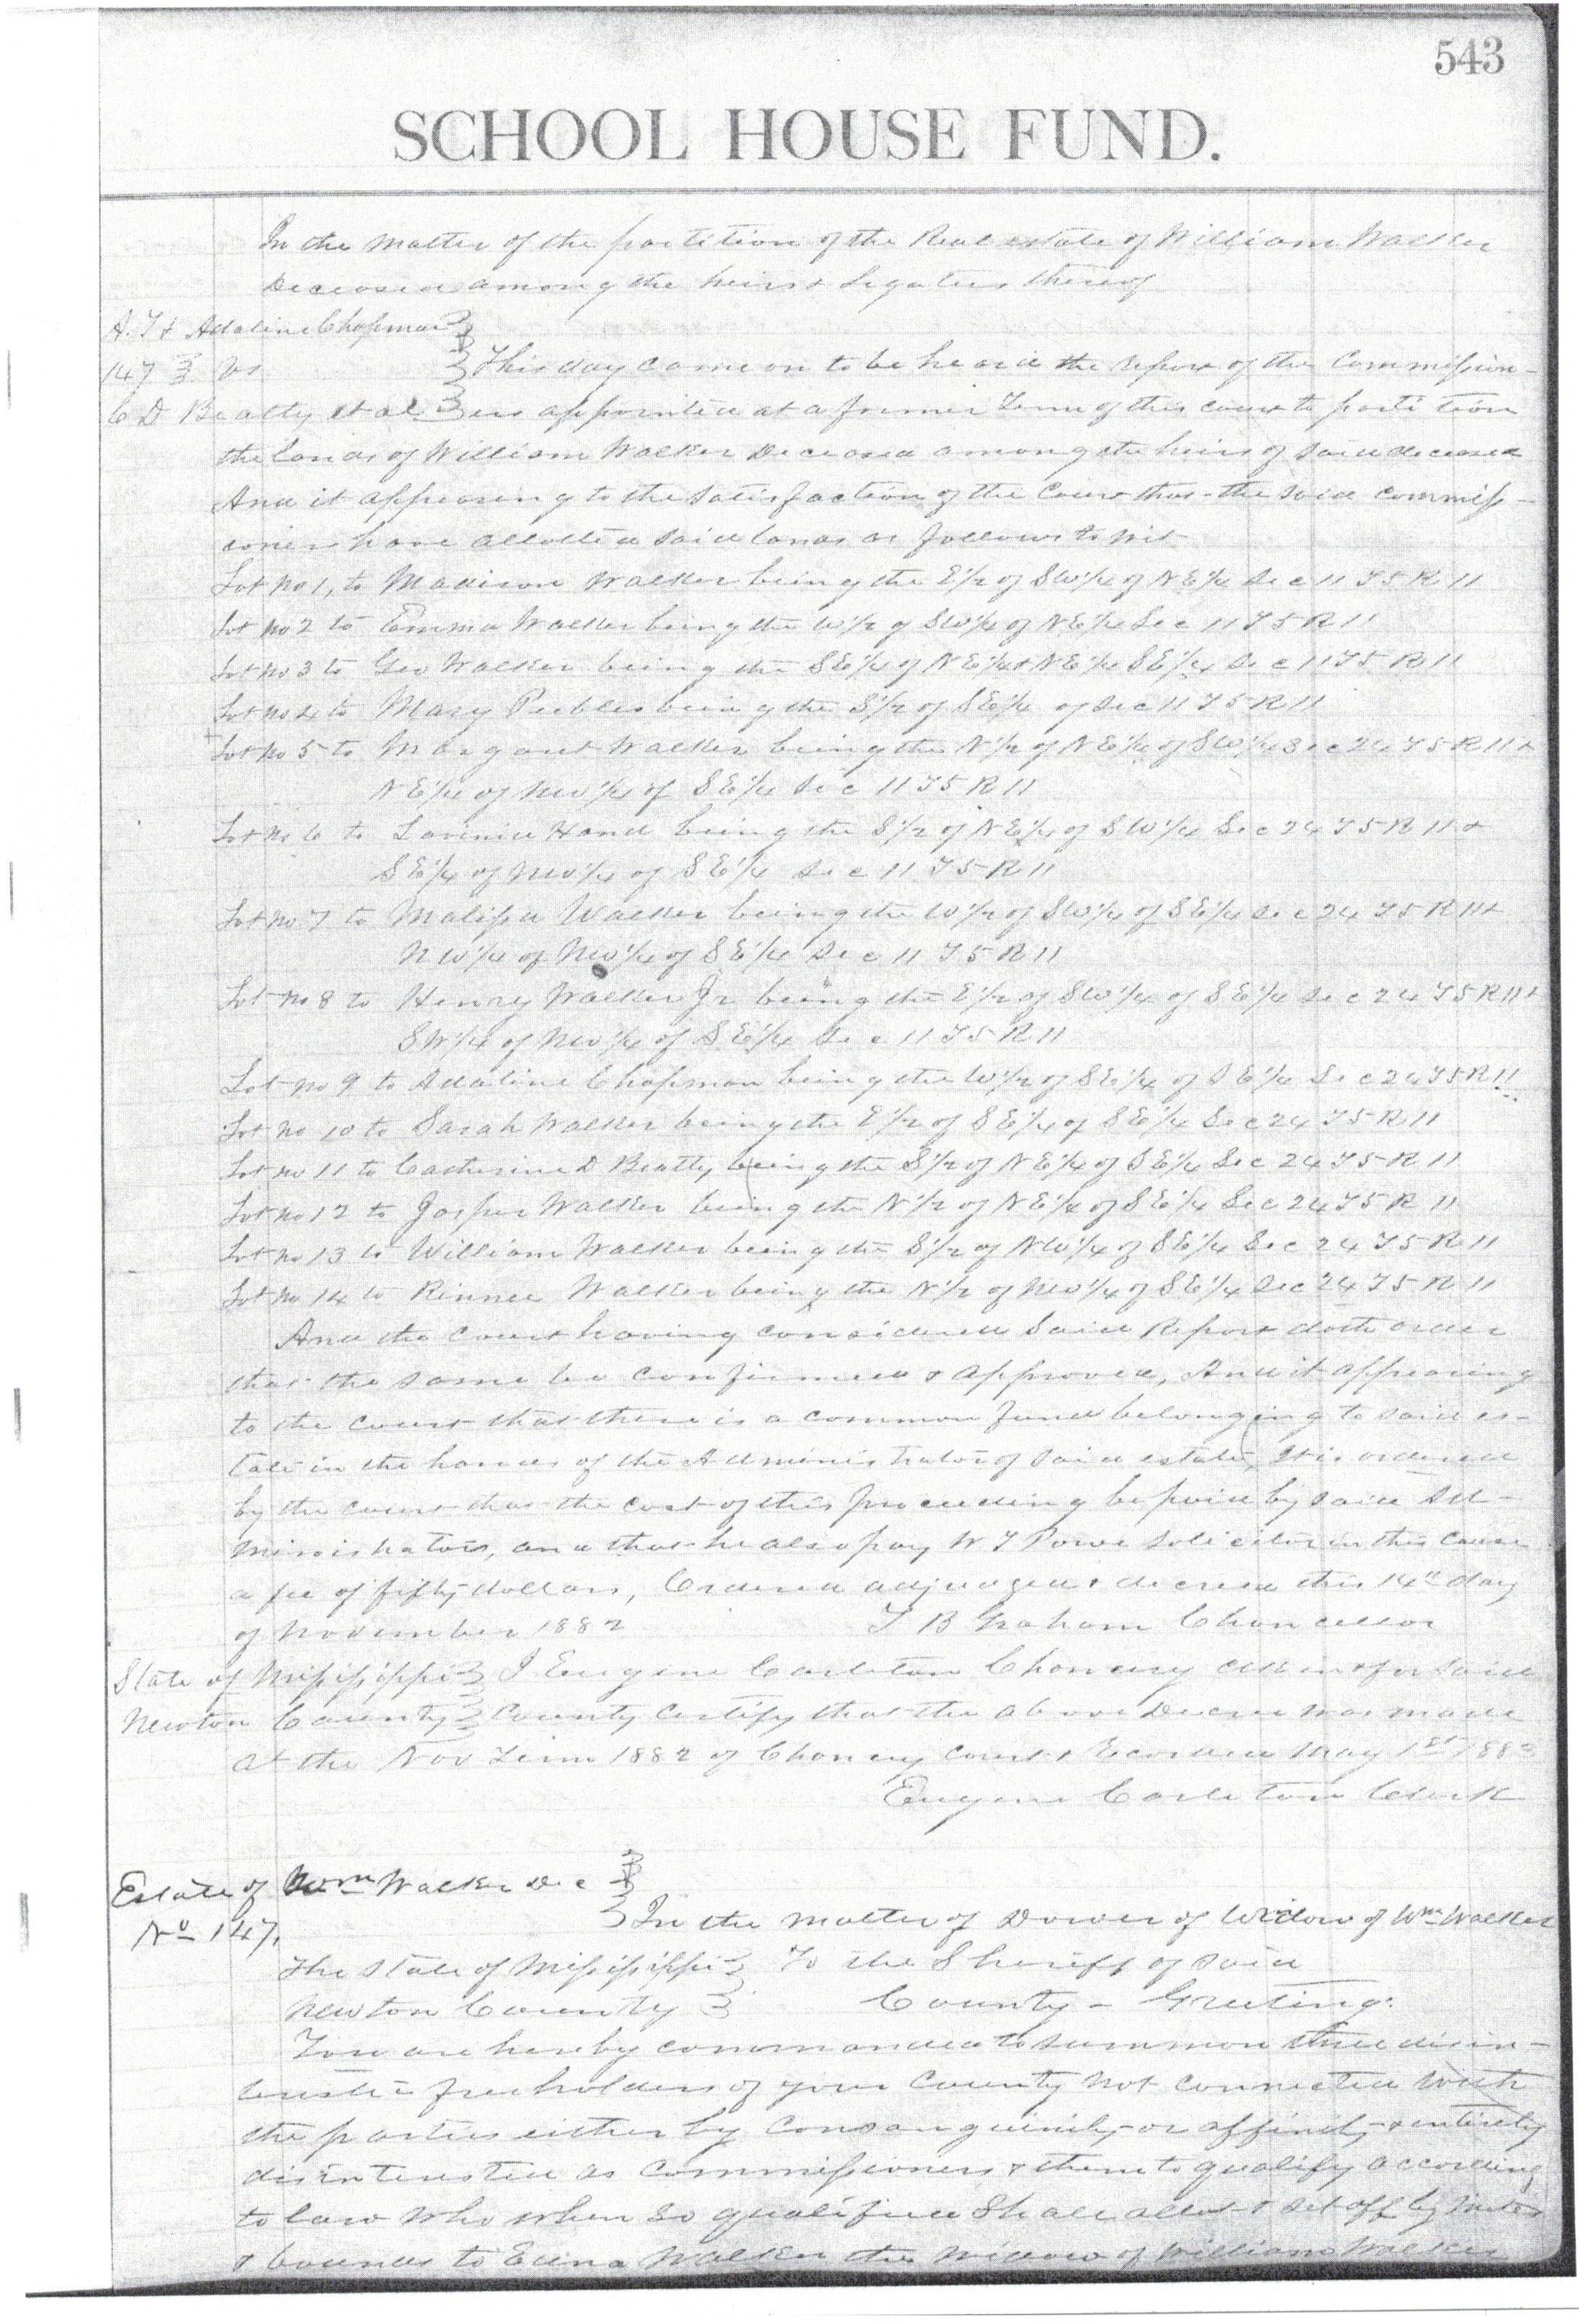 543
SCHOOL HOUSE FUND.
In the matter of the partition of the Real estate of William Walker
Deceased among the heirs & Legatees thereof
A. T & Adaline Chapman
147 Vs This day came on to be heard the report of the Commission-
C D Beatty et al ers appointed at a former Term of this court to partition
the lands of William Walker Deceased among the heirs of said deceased
And it appearing to the satisfaction of the Court that the said commiss-
ioners have allotted said lands as follows to wit
Lot No 1, to Madison Walker being the E1/2 of SW1/4 of NE1/4 Sec 11 T5 R 11
Lot No 2 to Emma Walker being the W1/2 of SW1/4 of NE1/4 Sec 11 T5 R 11
Lot No 3 to Geo Walker being the SE1/4 of NE1/4 & NE1/4 SE1/4 Sec 11 T5 R 11
Lot No 4 to Mary Peebles being the S1/2 of SE1/4 of Sec 11 T5 R 11
Lot No 5 to Margaret Walker being the N1/2 of NE1/4 of SW1/4 Sec 24 T5 R 11 &
NE1/4 of NW1/4 of SE1/4 Sec 11 T5 R 11
Lot No 6 to Lavinia Hand being the S1/2 of NE1/4 of SW1/4 Sec 24 T5 R 11 &
SE1/4 of NW1/4 of SE1/4 Sec 11 T5 R 11
Lot No 7 to Malissa Walker being the W1/2 of SW1/4 of SE1/4 Sec 24 T5 R 11 &
NW1/4 of NW1/4 of SE1/4 Sec 11 T5 R 11
Lot No 8 to Henry Walker Jr being the E1/2 of SW1/4 of SE1/4 Sec 24 T5 R 11 &
SW1/4 of NW1/4 of SE1/4 Sec 11 T5 R 11
Lot No 9 to Adaline Chapman being the W1/2 of SE1/4 of SE1/4 Sec 24 T5 R 11
Lot No 10 to Sarah Walker being the E1/2 of SE1/4 of SE1/4 Sec 24 T5 R 11
Lot No 11 to Catherine D Beatty being the S1/2 of NE1/4 of SE1/4 Sec 24 T5 R 11
Lot No 12 to Jasper Walker being the N1/2 of NE1/4 of SE1/4 Sec 24 T5 R 11
Lot No 13 to William Walker being the S1/2 of NW1/4 of SE1/4 Sec 24 T5 R 11
Lot No 14 to Walker being the N1/2 of NW1/4 of SE1/4 Sec 24 T5 R 11
And the court having considered said Report doth order
that the same be confirmed & approved, And it appearing
to the court that there is a common fund belonging to said es-
tate in the hands of the Administrator of said estate, It is ordered
by the court that the cost of this proceeding be paid by said Ad-
ministrator, and that he also pay W T Powe solicitor in this cause
a fee of fifty dollars, Ordered adjudged & decreed this 14th day
of November 1882 T B Graham Chancellor
State of Mississippi I Eugene Carleton Chancery Clk in & for said
Newton County County certify that the above Decree was made
at the Nov Term 1882 of Chancery court & Recorded May 1st 1883
Eugene Carleton Clerk
Estate of Wm Walker Dec
No 147, In the matter of Dower of Widow of Wm Walker
The State of Mississippi To the Sheriff of said
Newton County County - Greeting:
You are hereby commanded to summon three disin-
terested freeholders of your County not connected with
the parties either by consanguinity or affinity & entirely
disinterested as commissioners & them to qualify according
to law who when so qualified shall allot & set off by metes
& bounds to Walker the widow of William Walker